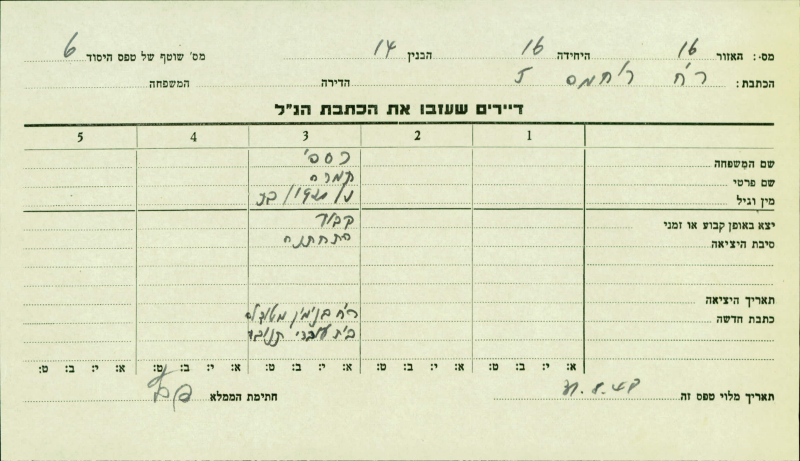 מס׳: האזור 16 היחידה 16 הבנין 14 מס׳ שוטף של טפס היסוד 6
הכתבת: רח׳ 5 הדירה המשפחה
דיירים שעזבו את הכתבת הנ"ל
1 2 3 4 5
שם המשפחה
שם פרטי תמרה
מין וגיל
יצא באופן קבוע או זמני קבוע
סיבת היציאה התחתנה
תאריך היציאה
כתבת חדשה רח׳ בנימין מטודלה
בית עובדי תנובה
א: י: ב: ט: א: י: ב: ט: א: י: ב: ט: א: י: ב: ט: א: י: ב: ט:
תאריך מלוי טפס זה חתימת הממלא